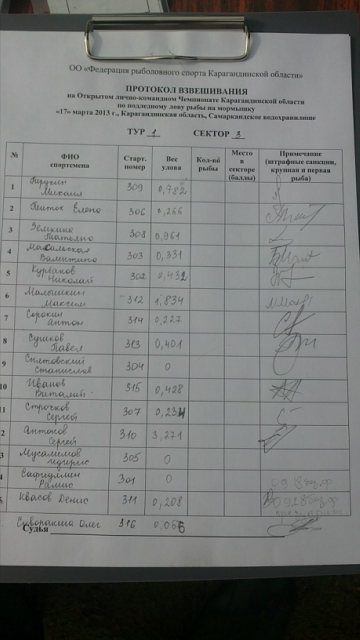 ОО «Федерация рыболовного спорта Карагандинской области»
ПРОТОКОЛ ВЗВЕШИВАНИЯ
на Открытом лично-командном Чемпионате Карагандинской области
по подледному лову рыбы на мормышку
«17» марта 2013 г., Карагандинская область, Самаркандское водохранилище
ТУР 1 СЕКТОР 3
№ ФИО спортсмена Старт. номер Вес улова Кол-во рыбы Место в секторе (баллы) Примечание (штрафные санкции, крупная и первая рыба)
1 Михаил 309 0,782
2 Елена 306 0,266
3 308 0,961
4 Валентина 303 0,331
5 Николай 302 0,432
6 Малышкин Максим 312 1,834
7 Сорокин Антон 314 0,227
8 Сушков Павел 313 0,401
9 Снятовский Станислав 304 0
10 Иванов Виталий 315 0,428
11 Строчков Сергей 307
2 Антонов Сергей 310 3,271
3 Мусалимов 305 0
4 301 0
Квасов Денис 311 0,208
Олег 316
Судья